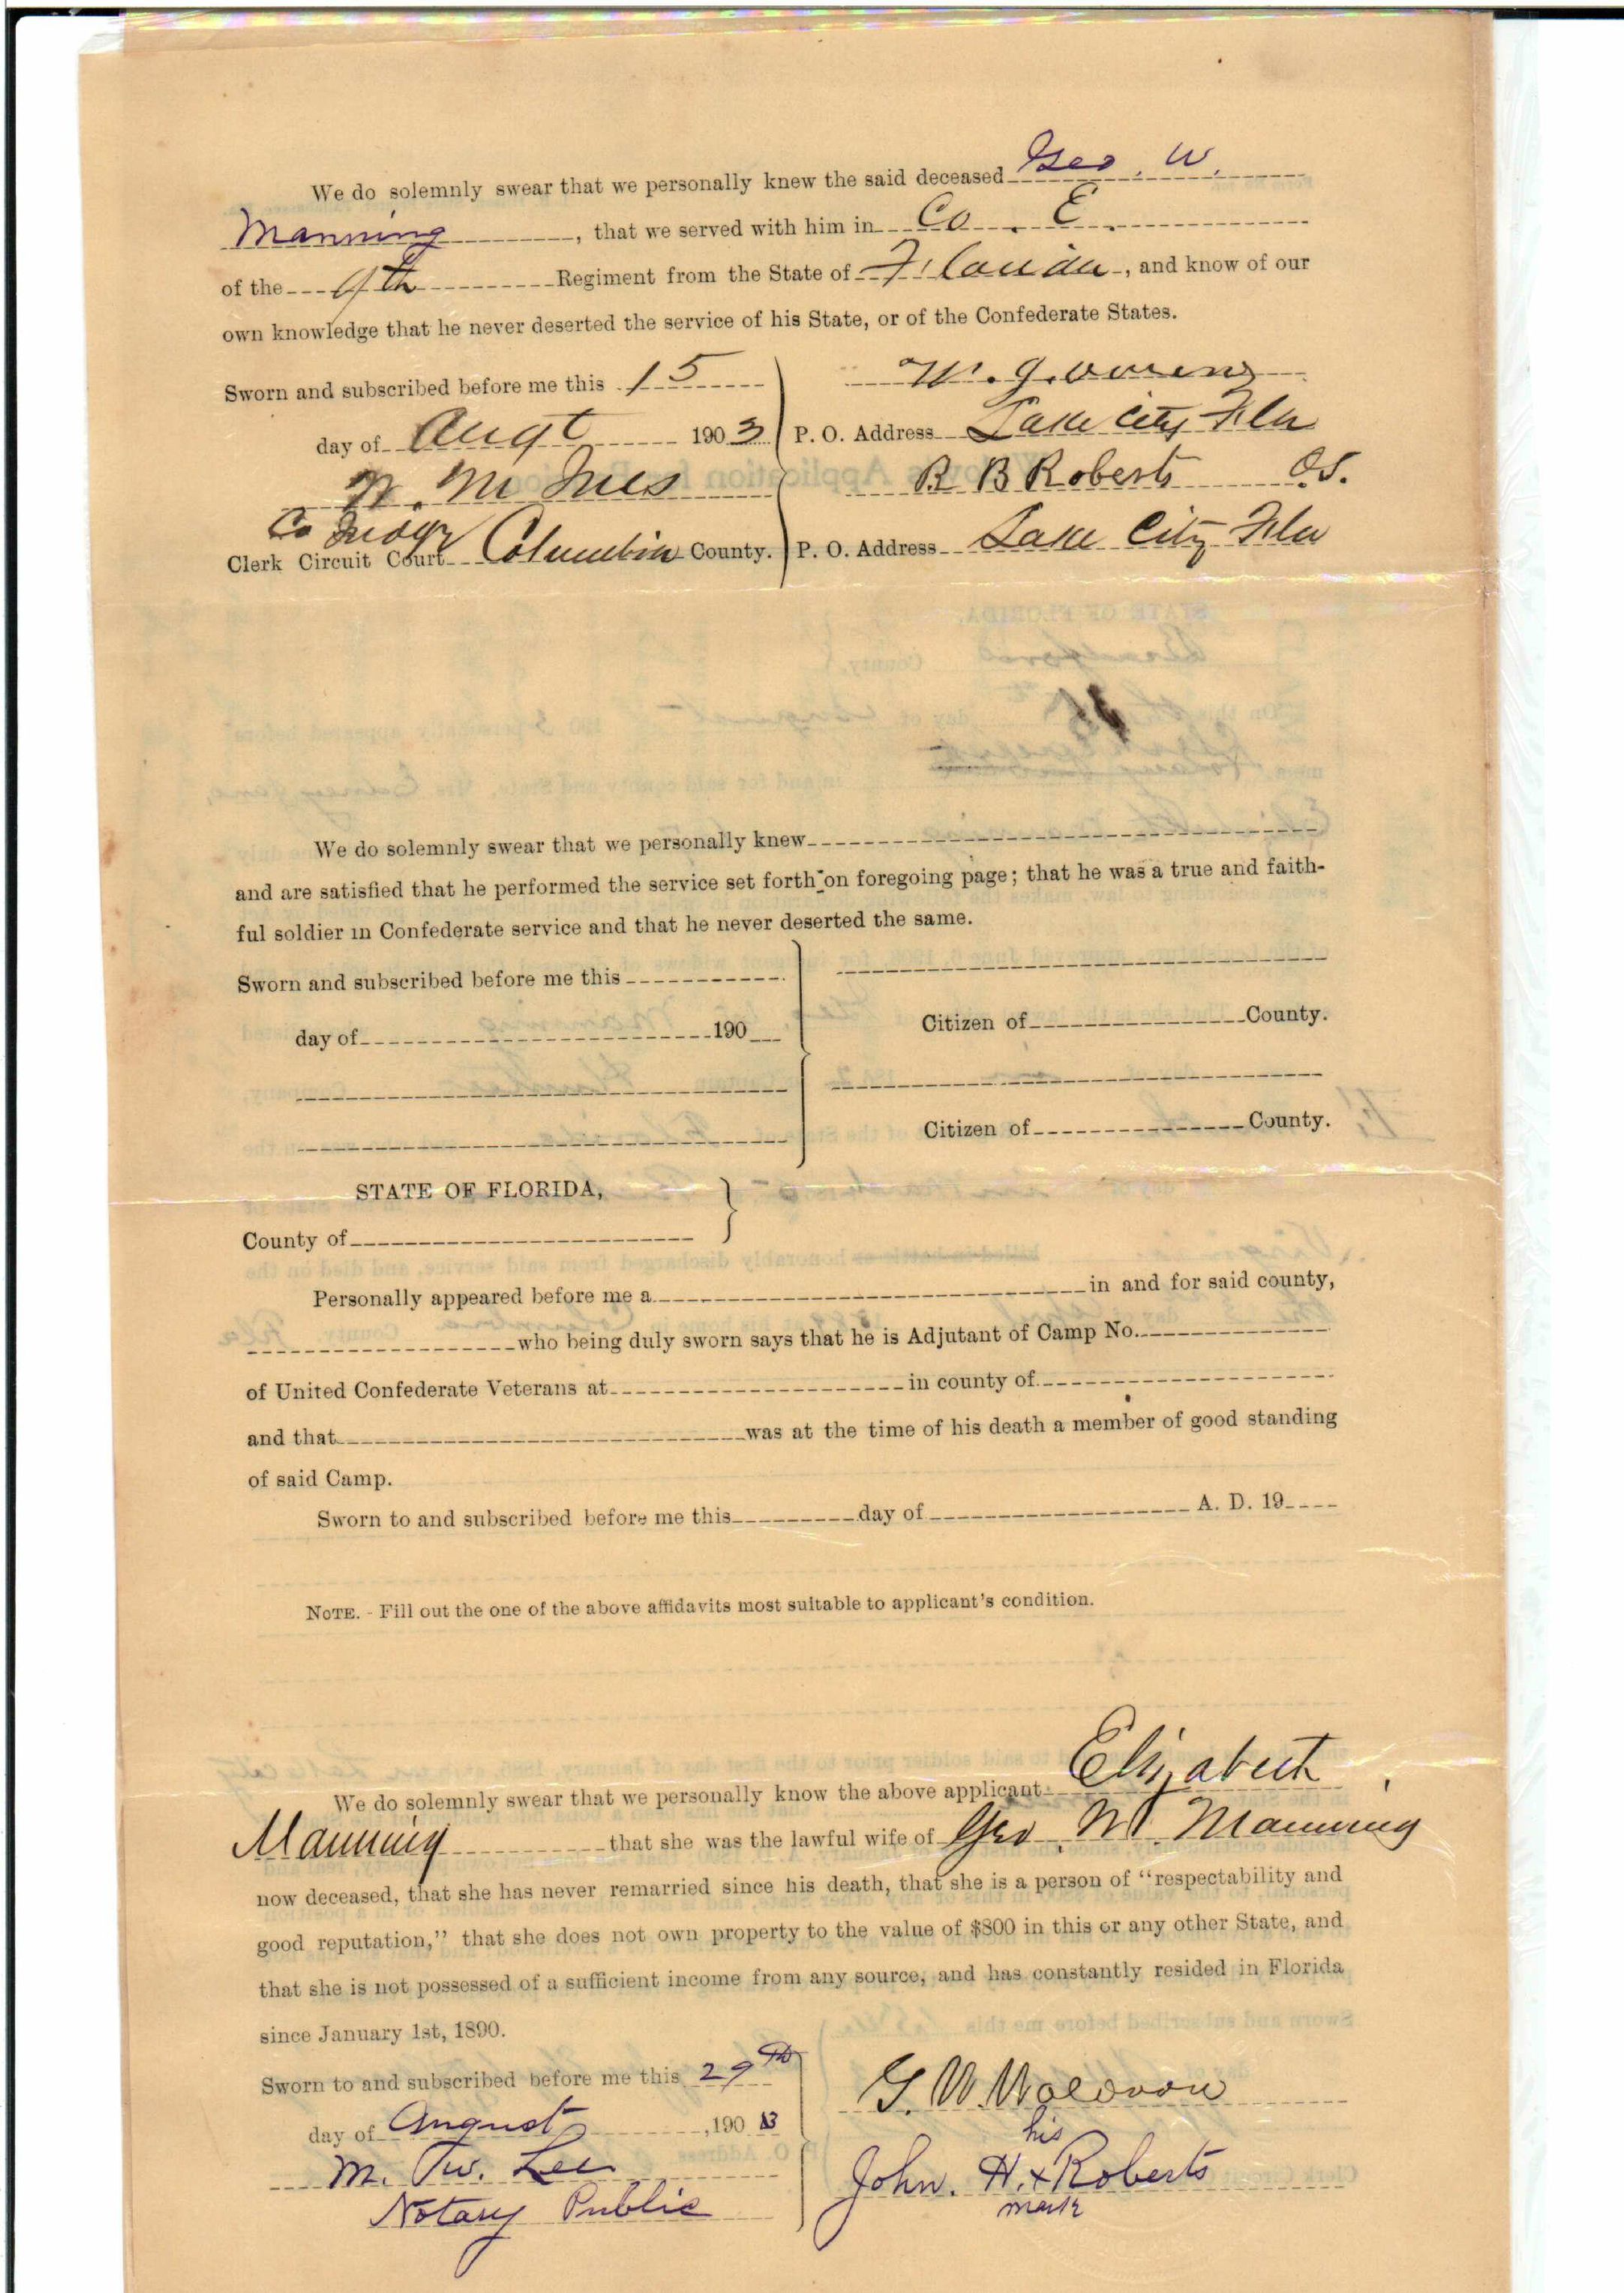 We do solemnly swear that we personally knew the said deceased Geo. W.
Manning, that we served with him in Co. E.
of the 9th Regiment from the State of Florida, and know of our
own knowledge that he never deserted the service of his State, or of the Confederate States.
Sworn and subscribed before me this 15
day of Augt 1903
W. M. Ives
Co Judge
Clerk Circuit Court Columbia County.
W. J. Owens
P. O. Address Lake City Fla
R B Roberts O.S.
P. O. Address Lake City Fla
We do solemnly swear that we personally knew
and are satisfied that he performed the service set forth on foregoing page; that he was a true and faith-
ful soldier in Confederate service and that he never deserted the same.
Sworn and subscribed before me this
day of 190
Citizen of County.
Citizen of County.
STATE OF FLORIDA,
County of
Personally appeared before me a in and for said county,
who being duly sworn says that he is Adjutant of Camp No.
of United Confederate Veterans at in county of
and that was at the time of his death a member of good standing
of said Camp.
Sworn to and subscribed before me this day of A. D. 19
NOTE. - Fill out the one of the above affidavits most suitable to applicant's condition.
We do solemnly swear that we personally know the above applicant Elizabeth
Manning that she was the lawful wife of Geo. W. Manning
now deceased, that she has never remarried since his death, that she is a person of "respectability and
good reputation," that she does not own property to the value of $800 in this or any other State, and
that she is not possessed of a sufficient income from any source, and has constantly resided in Florida
since January 1st, 1890.
Sworn to and subscribed before me this 29th
day of August, 1903
M. W. Lee
Notary Public
G. W. Waldron
his
John. H. x Roberts
mark